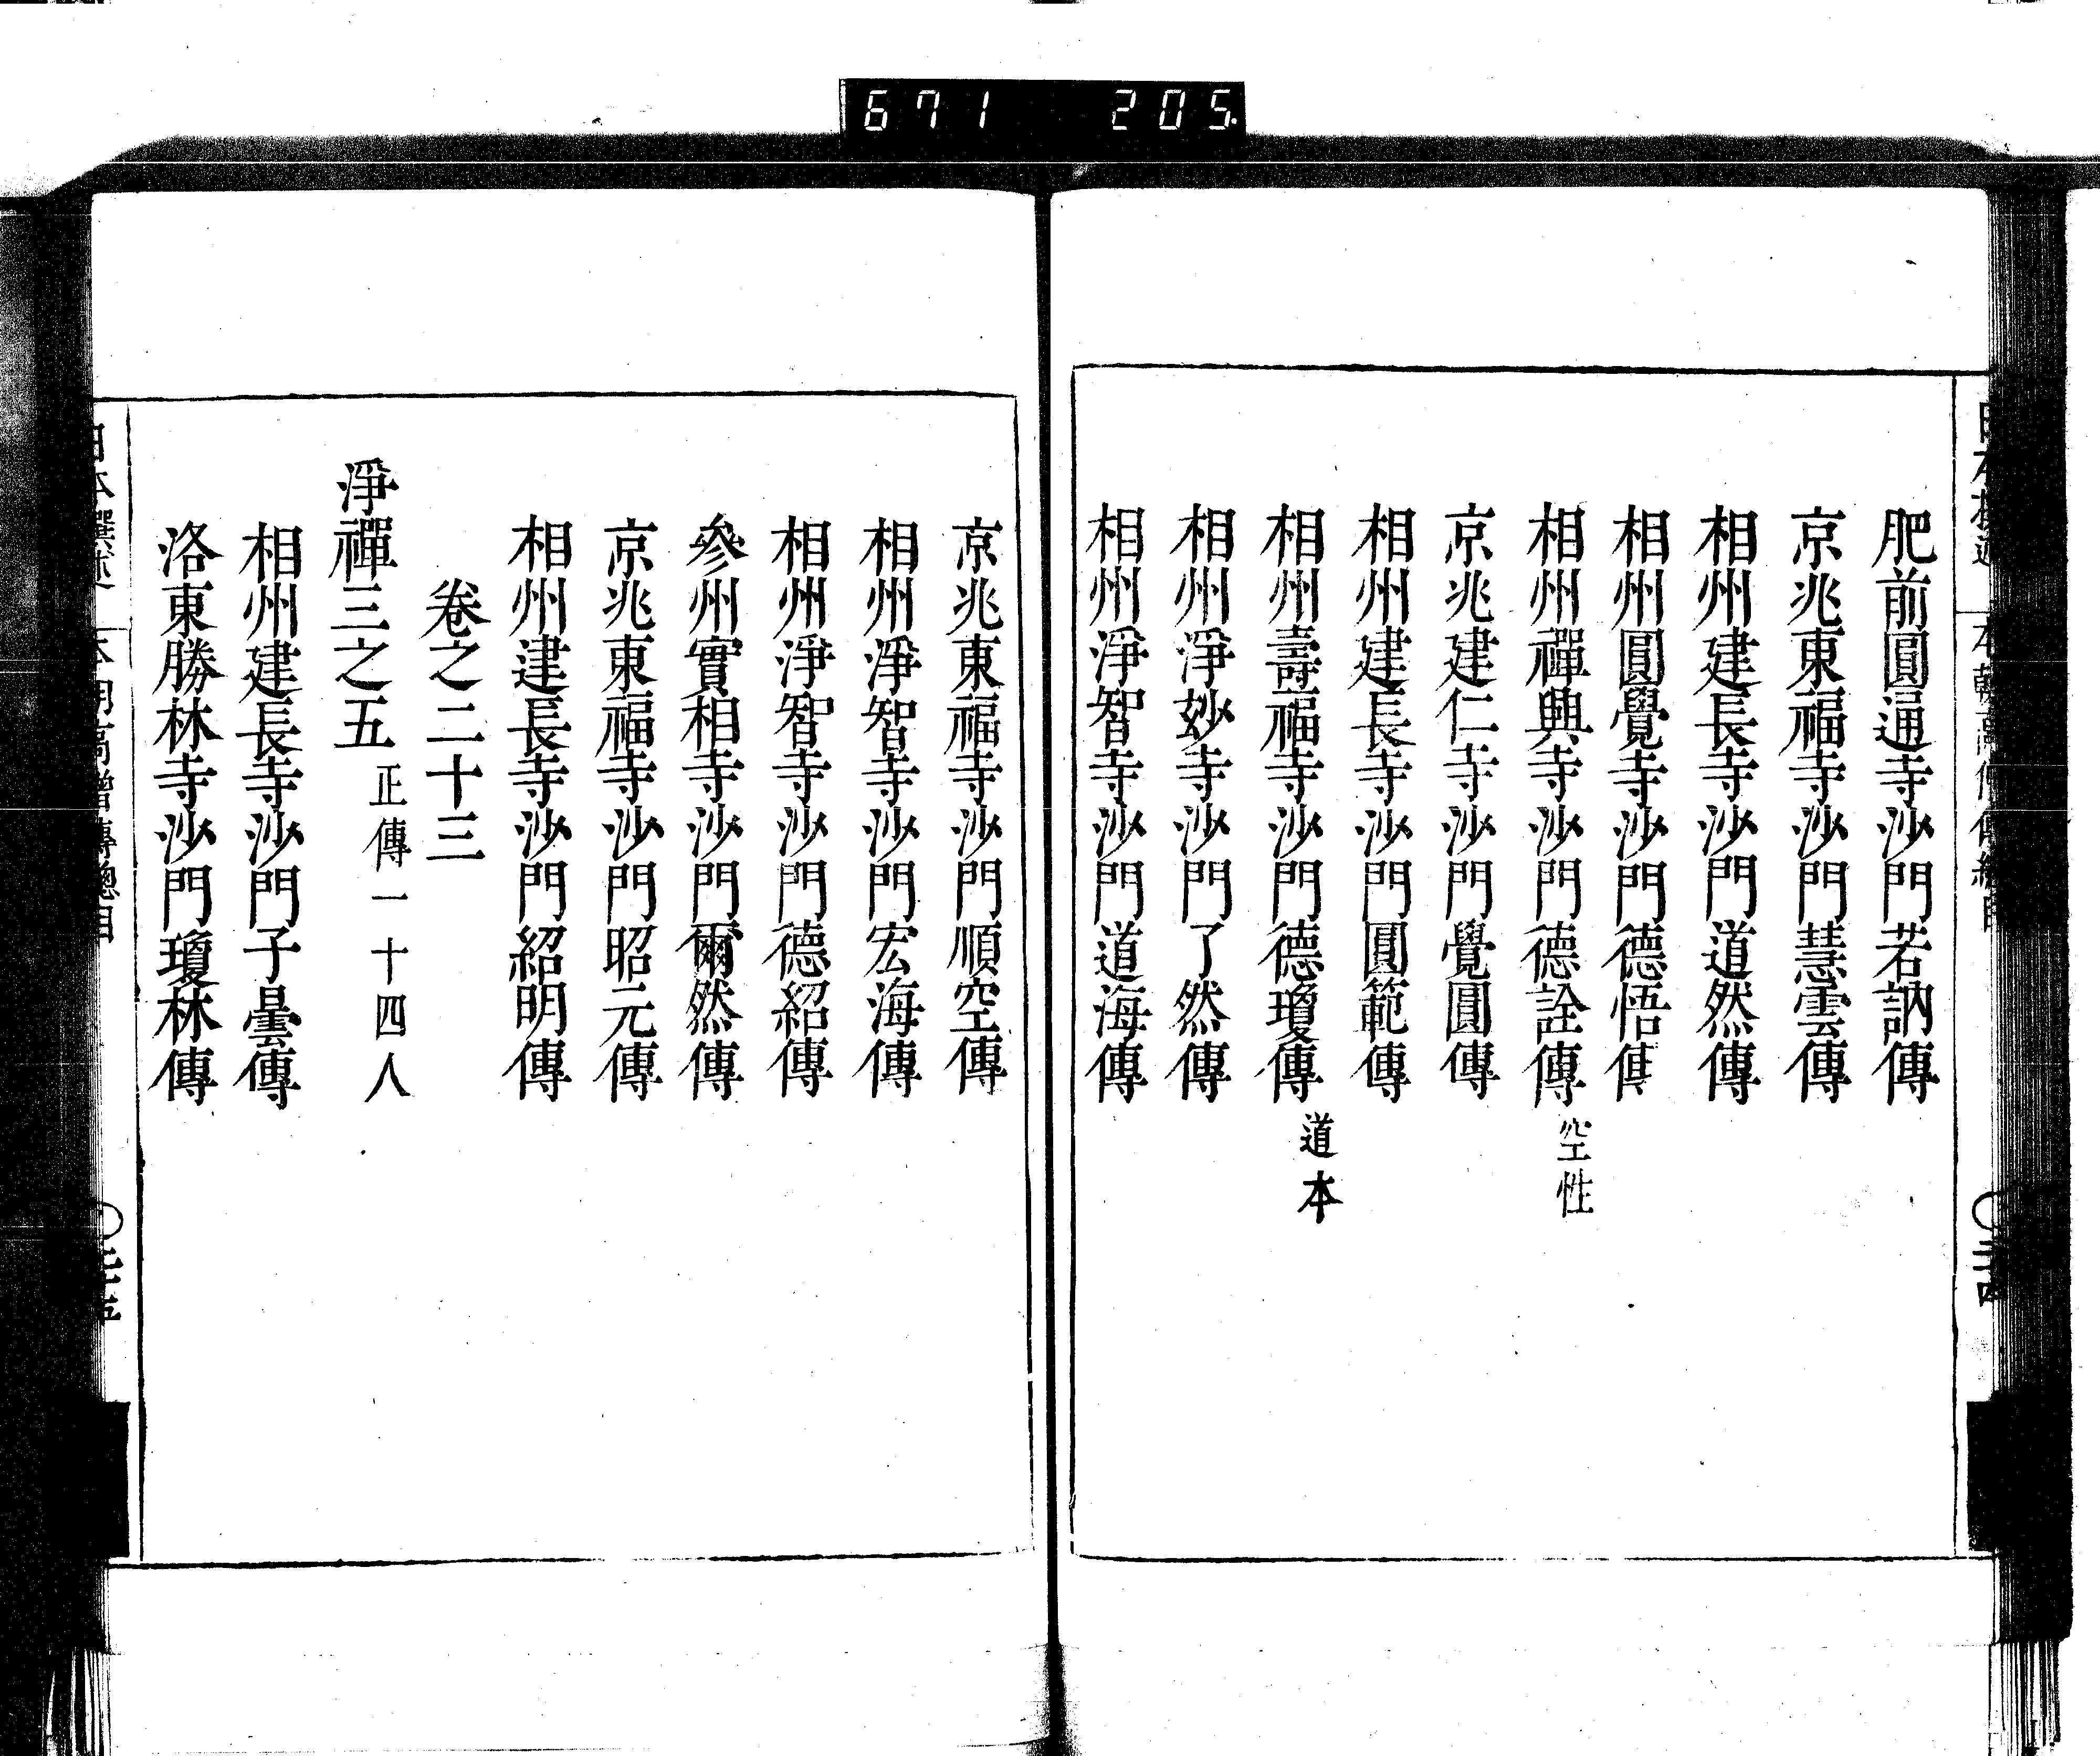 671 205
肥前圓通寺沙門若訥傳
京兆東福寺沙門慧雲傳
相州建長寺沙門道然傳
相州圓覺寺沙門德悟傳
相州禪興寺沙門德詮傳 空性
京兆建仁寺沙門覺圓傳
相州建長寺沙門圓範傳
相州壽福寺沙門德瓊傳 道本
相州淨妙寺沙門了然傳
相州淨智寺沙門道海傳
京兆東福寺沙門順空傳
相州淨智寺沙門宏海傳
相州淨智寺沙門德紹傳
參州實相寺沙門爾然傳
京兆東福寺沙門昭元傳
相州建長寺沙門紹明傳
卷之二十三
淨禪三之五 正傳一十四人
相州建長寺沙門子曇傳
洛東勝林寺沙門瓊林傳
日本撰述 本朝高僧傳總目